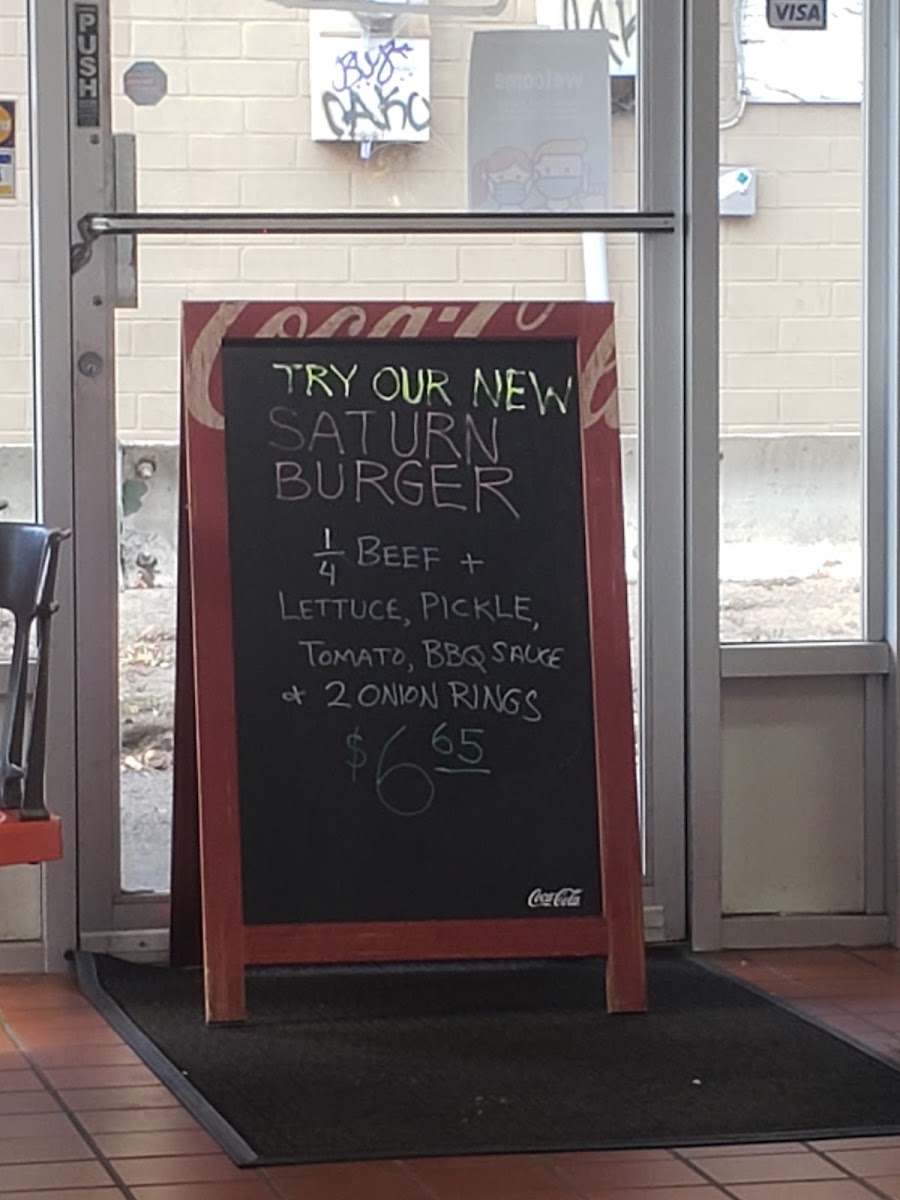 PUSH
VISA
welcome
Coca-Cola
TRY OUR NEW
SATURN
BURGER
1/4 BEEF +
LETTUCE, PICKLE,
TOMATO, BBQ SAUCE
& 2 ONION RINGS
$6 65
Coca-Cola